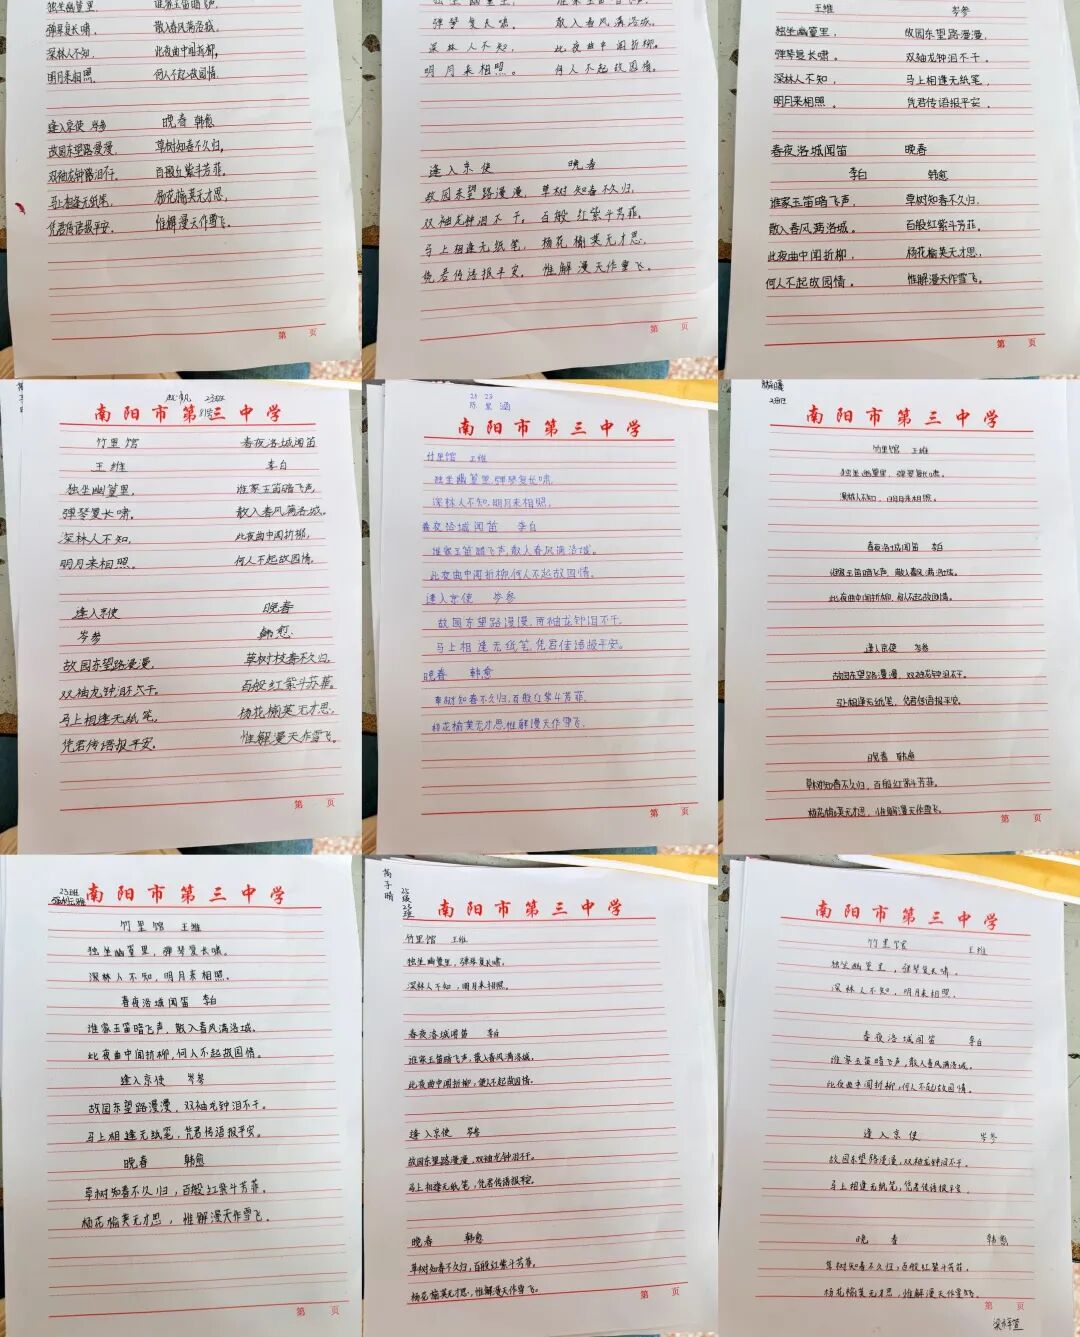 独坐幽篁里, 谁家玉笛暗飞声,
弹琴复长啸, 散入春风满洛城,
深林人不知, 此夜曲中闻折柳,
明月来相照. 何人不起故园情,
逢入京使 岑参 晚春 韩愈
故园东望路漫漫, 草树知春不久归,
双袖龙钟泪不干, 百般红紫斗芳菲,
马上相逢无纸笔, 杨花榆荚无才思,
凭君传语报平安, 惟解漫天作雪飞。
第 页
弹琴复长啸, 散入春风满洛城,
深林人不知, 此夜曲中闻折柳,
明月来相照。 何人不起故园情,
逢入京使 晚春
故园东望路漫漫, 草树知春不久归,
双袖龙钟泪不干, 百般红紫斗芳菲,
马上相逢无纸笔, 杨花榆荚无才思,
君传语报平安, 惟解漫天作雪飞。
第 页
王维 岑参
独坐幽篁里, 故园东望路漫漫,
弹琴复长啸, 双袖龙钟泪不干,
深林人不知, 马上相逢无纸笔,
明月来相照, 凭君传语报平安,
春夜洛城闻笛 晚春
李白 韩愈
谁家玉笛暗飞声, 草树知春不久归,
散入春风满洛城。 百般红紫斗芳菲,
此夜曲中闻折柳, 杨花榆荚无才思,
何人不起故园情。 惟解漫天作雪飞。
第 页
23班
南阳市第三中学
竹里馆 春夜洛城闻笛
王维 李白
独坐幽篁里, 谁家玉笛暗飞声,
弹琴复长啸, 散入春风满洛城。
深林人不知, 此夜曲中闻折柳,
明月来相照. 何人不起故园情,
逢入京使 晚春
岑参 韩愈.
故园东望路漫漫, 草树枝春不久归,
双袖龙钟泪不干, 百般红紫斗芳菲,
马上相逢无纸笔, 杨花榆荚无才思,
凭君传语报平安, 惟解漫天作雪飞。
第 页
南阳市第三中学
竹里馆 王维
独坐幽篁里,弹琴复长啸,
深林人不知,明月来相照,
春夜洛城闻笛 李白
谁家玉笛暗飞声,散入春风满洛城。
此夜曲中闻折柳,何人不起故园情,
逢入京使 岑参
故园东望路漫漫,双袖龙钟泪不干,
马上相逢无纸笔,凭君传语报平安。
晚春 韩愈
草树知春不久归,百般红紫斗芳菲,
杨花榆荚无才思,惟解漫天作雪飞
第 页
23班
竹里馆 王维
独坐幽篁里,弹琴复长啸,
深林人不知,明月来相照。
春夜洛城闻笛 李白
谁家玉笛暗飞声,散入春风满洛城。
此夜曲中闻折柳,何人不起故园情。
逢入京使 岑参
故园东望路漫漫,双袖龙钟泪不干。
马上相逢无纸笔,凭君传语报平安。
晚春 韩愈
草树知春不久归,百般红紫斗芳菲。
杨花榆荚无才思,惟解漫天作雪飞。
第 页
23班
南阳市第三中学
竹里馆 王维
独坐幽篁里,弹琴复长啸。
深林人不知,明月来相照。
春夜洛城闻笛 李白
谁家玉笛暗飞声,散入春风满洛城。
此夜曲中闻折柳,何人不起故园情。
逢入京使 岑参
故园东望路漫漫,双袖龙钟泪不干。
马上相逢无纸笔,凭君传语报平安。
晚春 韩愈
草树知春不久归,百般红紫斗芳菲。
杨花榆荚无才思,惟解漫天作雪飞.
第 页
高子晴
25级23班
南阳市第三中学
竹里馆 王维
独坐幽篁里,弹琴复长啸,
深林人不知,明月来相照。
春夜洛城闻笛 李白
谁家玉笛暗飞声,散入春风满洛城,
此夜曲中闻折柳,人不起故园情。
逢入京使 岑参
故园东望路漫漫,双袖龙钟泪不干。
马上相逢无纸笔,凭君传语报平安。
晚春 韩愈
草树知春不久归,百般红紫斗芳菲,
杨花榆荚无才思,惟解漫天作雪飞。
第 页
南阳市第三中学
竹里馆 王维
独坐幽篁里,弹琴复长啸.
深林人不知,明月来相照.
春夜洛城闻笛 李白
谁家玉笛暗飞声,散入春风满洛城。
此夜曲中闻折柳,何人不起故园情。
逢入京使 岑参
故园东望路漫漫,双袖龙钟泪不干。
马上相逢无纸笔,凭君传语报平安。
晚春 韩愈
草树知春不久归,百般红紫斗芳菲。
杨花榆荚无才思,惟解漫天作雪飞。
第 页